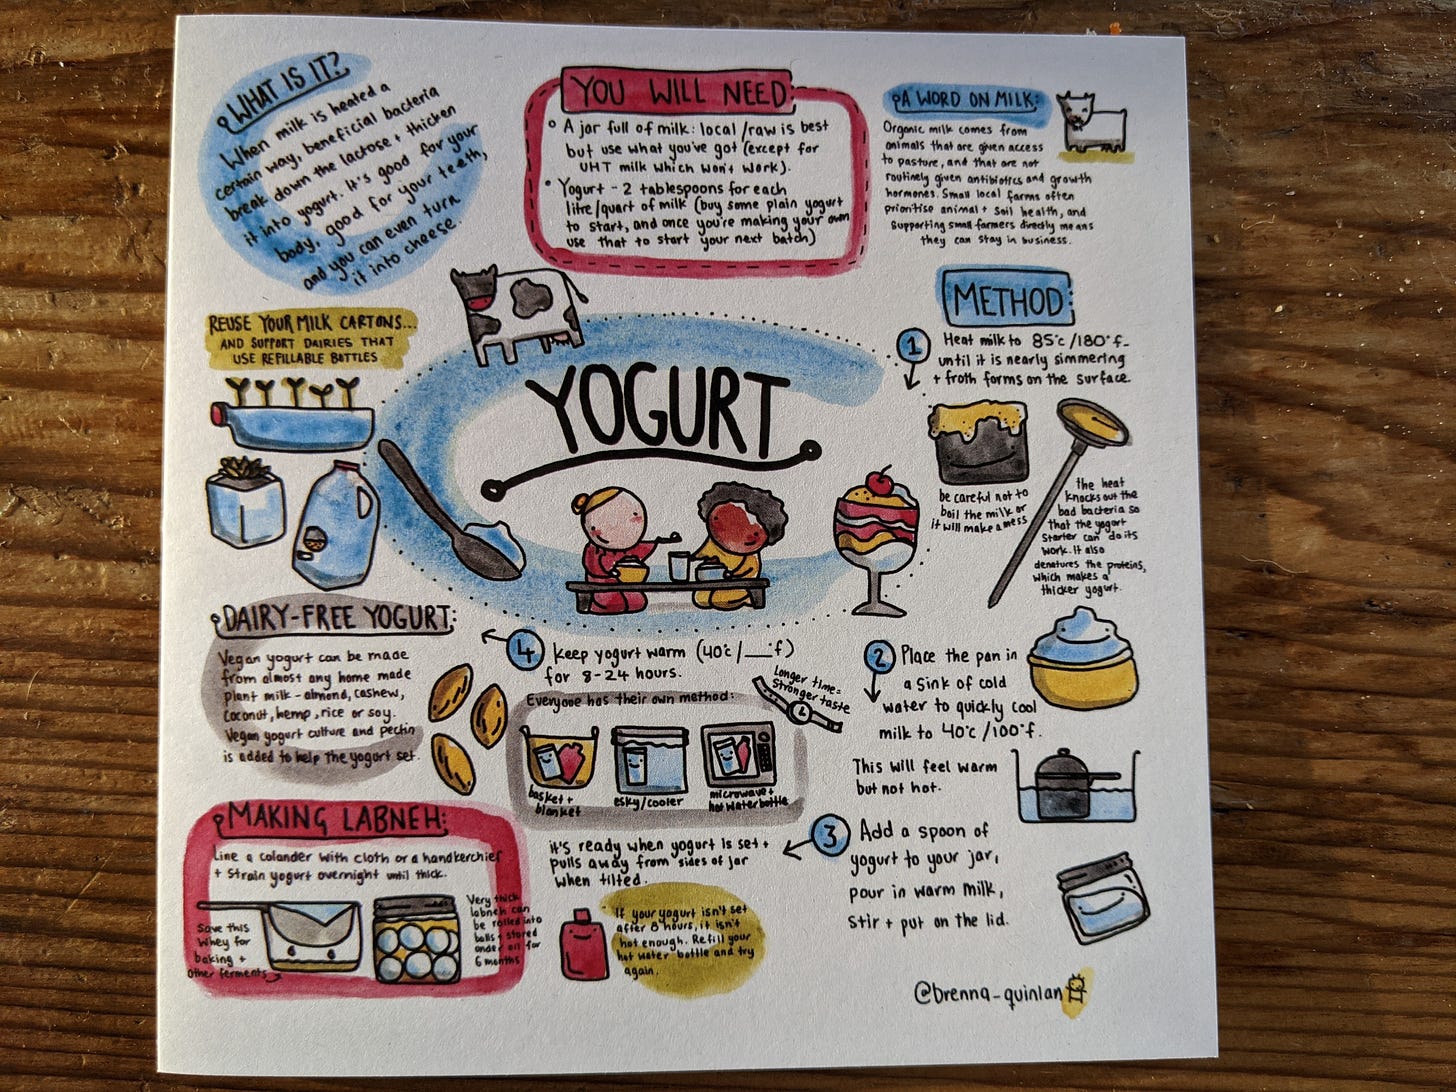 WHAT IS IT?
When milk is heated a
certain way, beneficial bacteria
break down the lactose + thicken
it into yogurt. It's good for your
body, good for your teeth,
and you can even turn
it into cheese.
YOU WILL NEED
• A jar full of milk: local/raw is best
but use what you've got (except for
UHT milk which won't work).
• Yogurt - 2 tablespoons for each
litre/quart of milk (buy some plain yogurt
to start, and once you're making your own
use that to start your next batch)
A WORD ON MILK:
Organic milk comes from
animals that are given access
to pasture, and that are not
routinely given antibiotics and growth
hormones. Small local farms often
prioritise animal + soil health, and
supporting small farmers directly means
they can stay in business.
REUSE YOUR MILK CARTONS...
AND SUPPORT DAIRIES THAT
USE REFILLABLE BOTTLES
YOGURT
METHOD:
1 Heat milk to 85°c/180°f-
until it is nearly simmering
+ froth forms on the surface.
be careful not to
boil the milk or
it will make a mess
the heat
knocks out the
bad bacteria so
that the yogurt
starter can do its
work. It also
denatures the proteins,
which makes a
thicker yogurt.
2 Place the pan in
a sink of cold
water to quickly cool
milk to 40°c/100°f.
This will feel warm
but not hot.
3 Add a spoon of
yogurt to your jar,
pour in warm milk,
stir + put on the lid.
4 keep yogurt warm (40°c/__°f)
for 8-24 hours.
Longer time=
Stronger taste
Everyone has their own method:
basket +
blanket
esky/cooler
microwave +
hot water bottle
it's ready when yogurt is set +
pulls away from sides of jar
when tilted.
If your yogurt isn't set
after 8 hours, it isn't
hot enough. Refill your
hot water bottle and try
again.
DAIRY-FREE YOGURT:
Vegan yogurt can be made
from almost any home made
plant milk - almond, cashew,
coconut, hemp, rice or soy.
Vegan yogurt culture and pectin
is added to help the yogurt set.
MAKING LABNEH:
Line a colander with cloth or a handkerchief
+ strain yogurt overnight until thick.
Save this
whey for
baking +
other ferments
Very thick
labneh can
be rolled into
balls + stored
under oil for
6 months
@brenna_quinlan